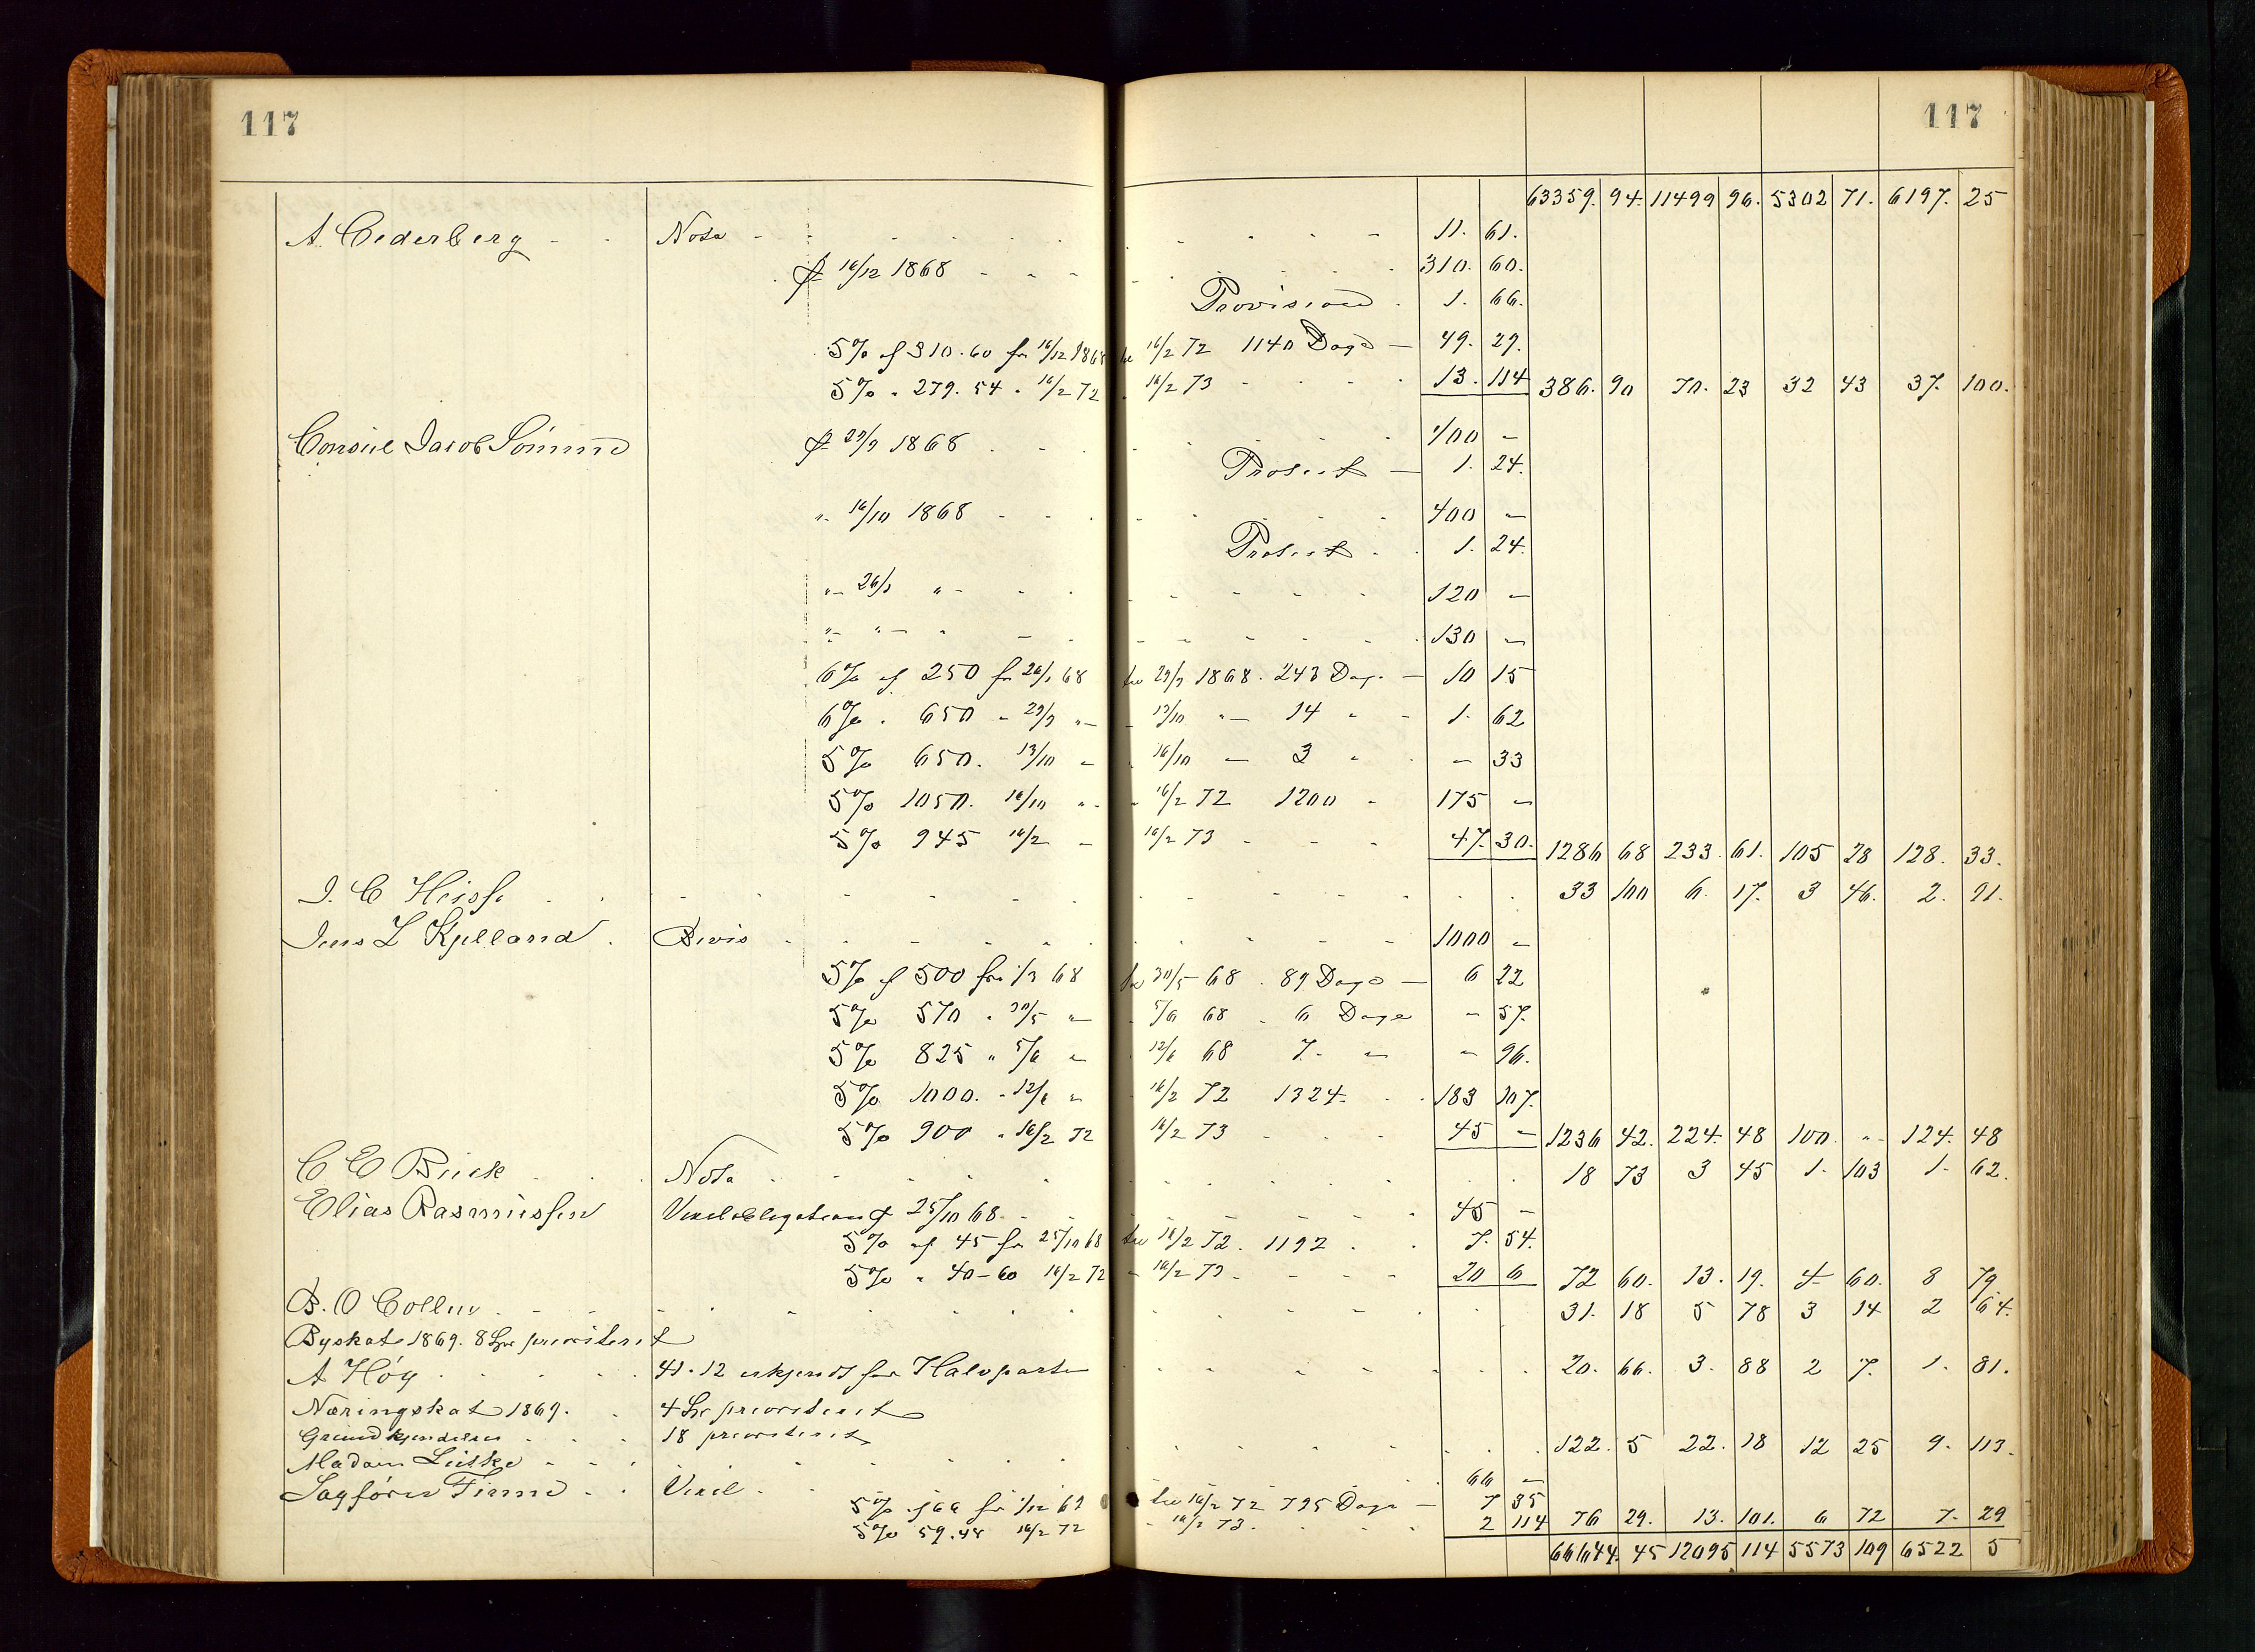 117 117
63359. 94. 11499 96. 5302 71. 6197. 25
A. Cederberg - - Nota - - 11. 61.
16/12 1868 - - - 310. 60.
Provision . 1. 66.
5% af 310.60 fra 16/12 1868 til 16/2 72 1140 Dage — 49. 29.
5% " 279.54 " 16/2 72 16/2 73 - 13. 114 386. 90 70. 23 32 43 37. 100.
Consul Jacob Sömme 29/9 1868 . 400 —
Protest — 1. 24.
"- 16/10 1868 - 400 —
Protest . 1. 24.
"- 26/1 "- 120 —
"- "- " 130 —
6% af 250 fra 26/1 68 til 29/9 1868. 243 Dag. — 10 15
6% . 650 - 29/9 "- - 13/10 "- 14 " - 1. 62
5% 650. 13/10 - 16/10 — 3 " - 33
5% 1050. 16/10 "- - 16/2 72 1200 - 175 -
5% 945 16/2 - 16/2 73 - 47. 30. 1286 68 233. 61. 105 28 128. 33.
J. C Heisse . . 33 100 6. 17. 3 46. 2. 91.
Jens L Kjelland . Bevis - 1000 -
5% af 500 fra 1/3 68 til 30/5 68 . 89 Dage — 6 22
5% 570 . 30/5 " 5/6 68 . 6 Dage - 57.
5% 825 " 5/6 " 12/6 68 7. " - 96.
5% 1000. - 12/6 " 16/2 72 1324. . 183 107.
5% 900 . 16/2 72 16/2 73 - 45 - 1236 42. 224. 48 100. "- 124. 48
C E Buck - . Nota . 18 73 3 45 1. 103 1. 62.
Elias Rasmussen Vexelobligation 25/10 68 - 45 -
5% af 45 fra 25/10 68 til 16/2 72. 1192 . 7. 54.
5% " 40-60 16/2 72 - 16/2 73 - 20 6 72 60. 13. 19. 4 60. 8 79
B. O Collin . 31. 18 5 78 3 14 2 64.
Byskat 1869. 8 prioriteret
A Hög . 41.12 erkjendt for Halvparten 20. 66. 3. 88 2 7. 1. 81.
Næringskat 1869. . 4 prioriteret
Grundkjendelser . 18 prioriteret
Madam Lütke - 122. 5 22. 18 12 25 9. 113.
Sagförer Finne - Vexel . 66 -
5% af 66 fra 1/12 69 til 16/2 72 795 Dage — 7 35
5% 59.48 16/2 72 - 16/2 73. 2 114 76 29. 13. 101. 6 72 7. 29
66644. 45 12095 114 5573 109 6522 5